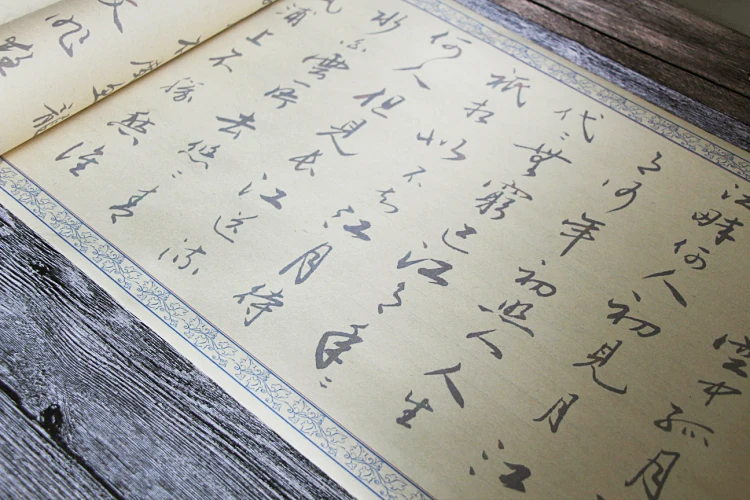 空中孤月
江畔何人初見月江
月何年初照人人生
代〻無窮已江月年〻
祇相似不知江月待
何人但見長江送流
水白雲一片去悠〻青
浦上不勝愁誰